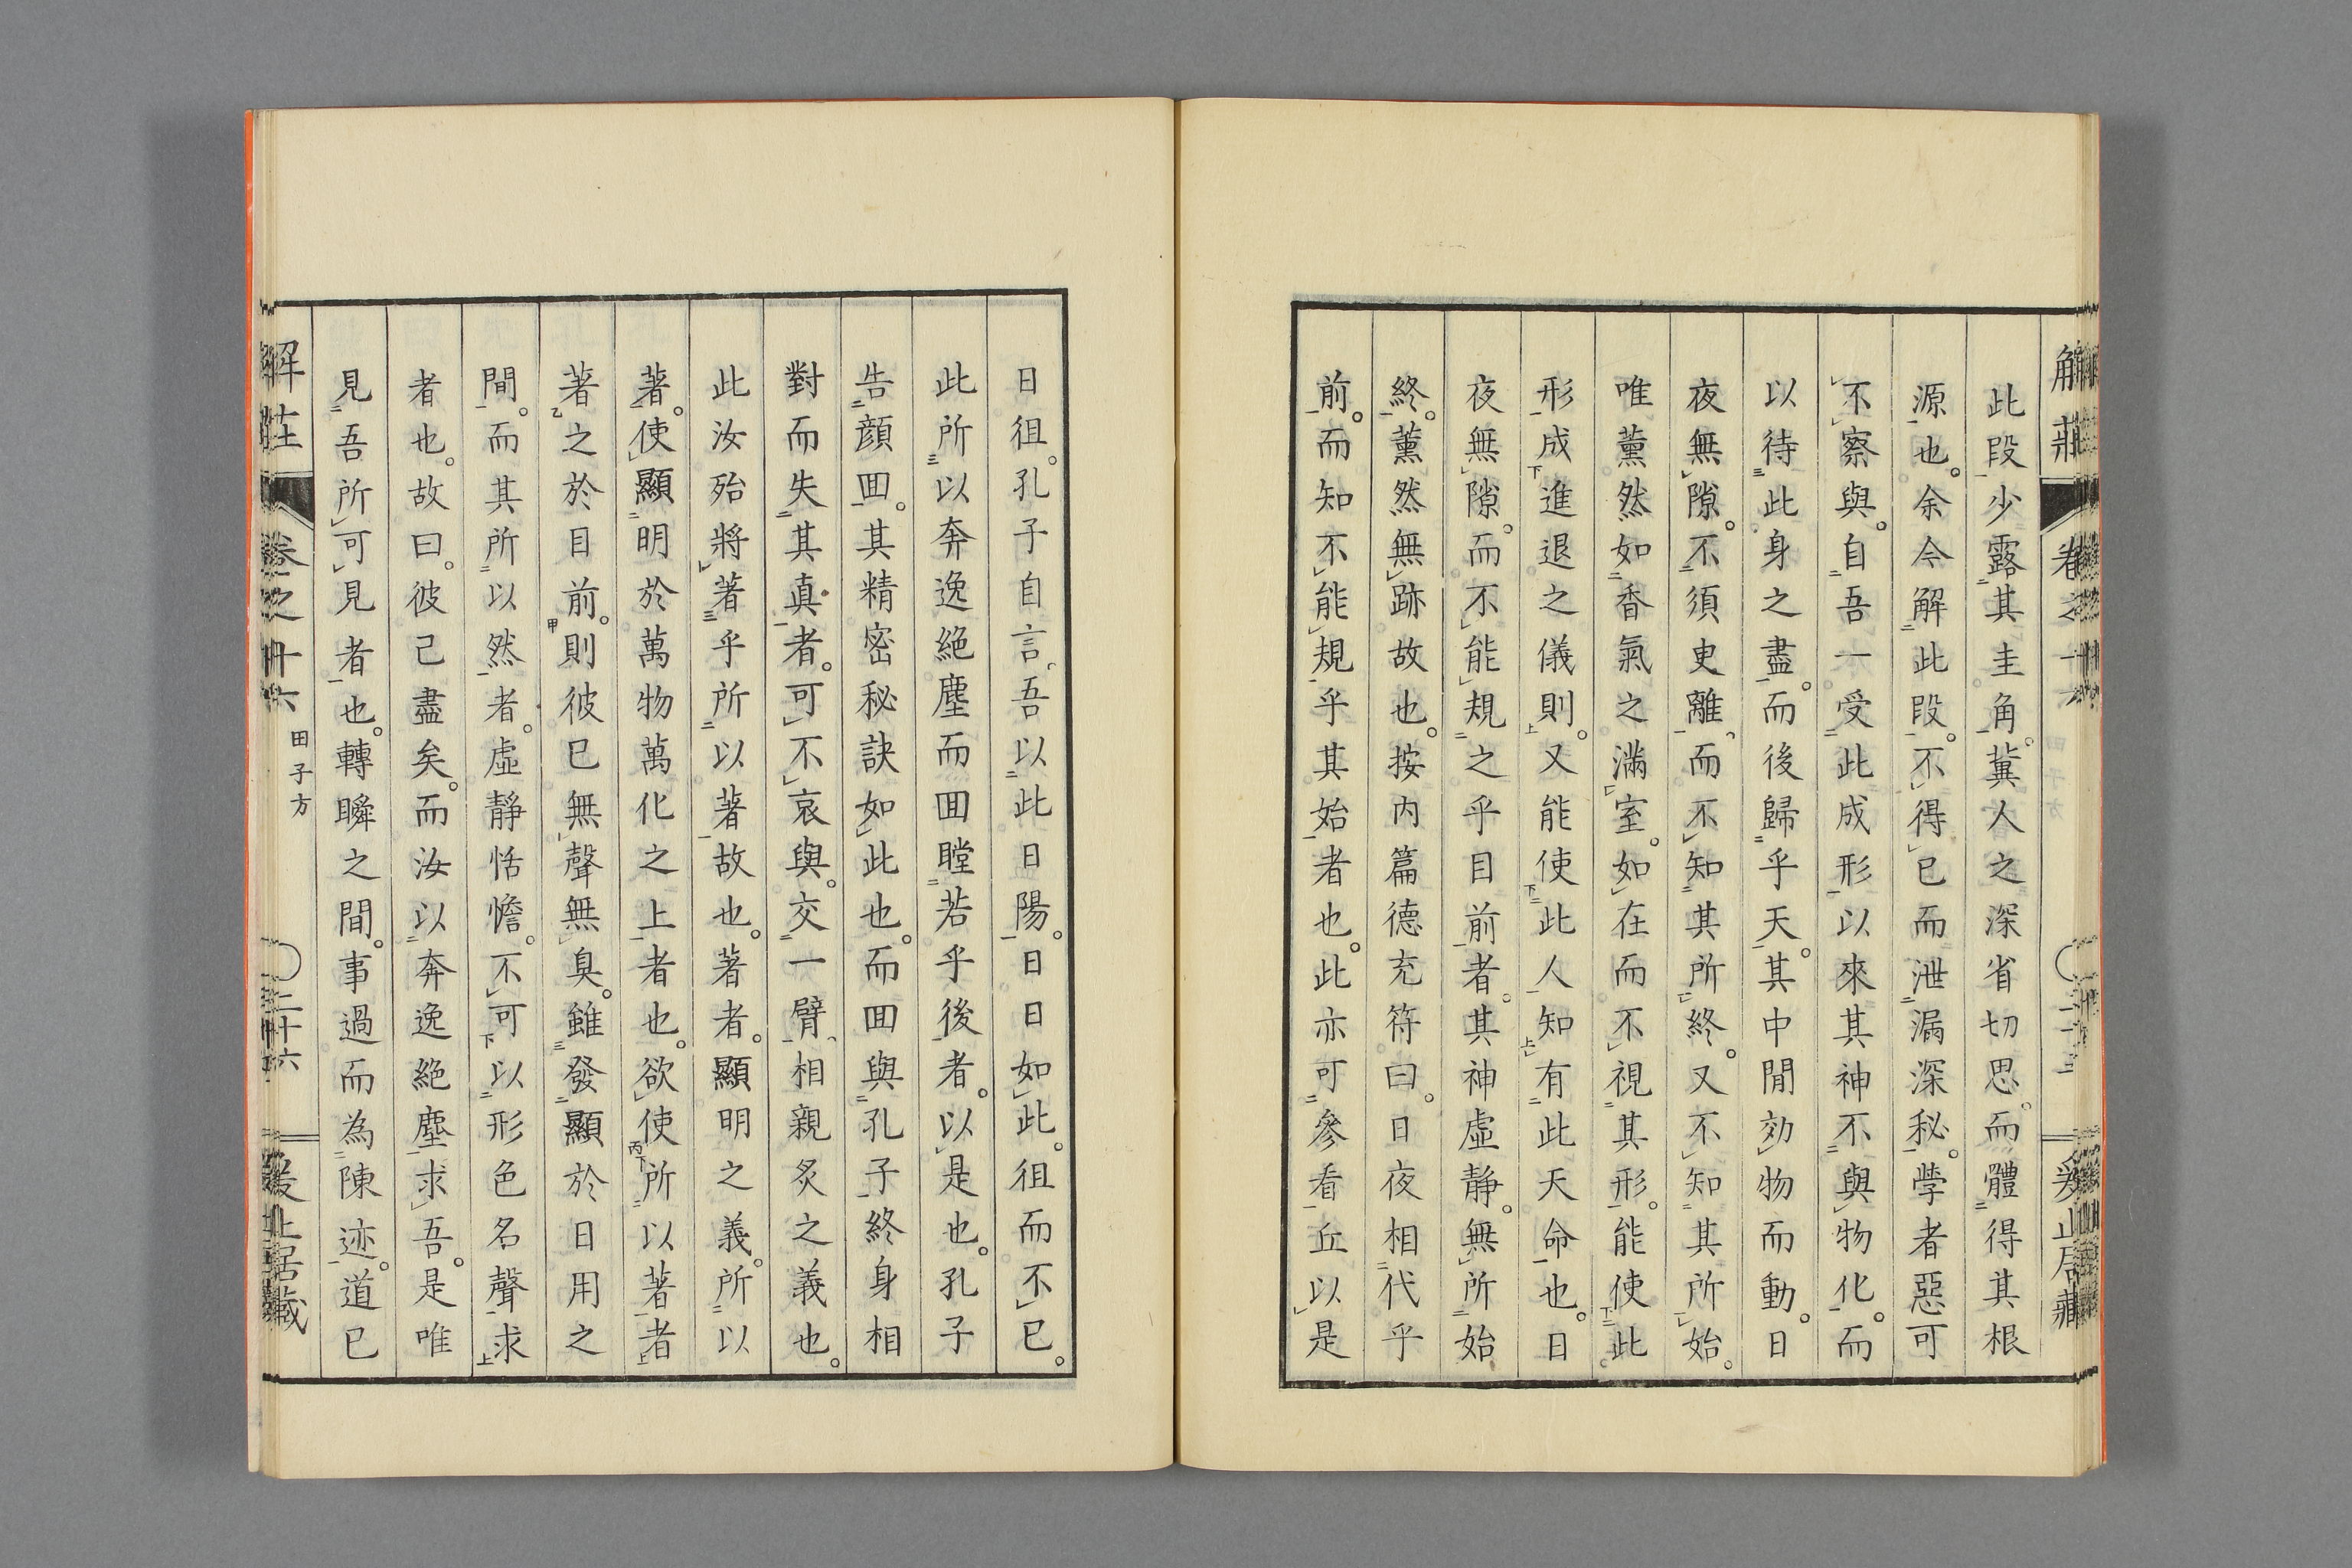 此段少露其圭角。冀人之深省切思。而體得其根
源也。余今解此段。不得已而泄漏深秘。學者惡可
不察與。自吾一受此成形以來其神不與物化。而
以待此身之盡。而後歸乎天。其中閒効物而動。日
夜無隙。不須臾離而不知其所終。又不知其所始。
唯薰然如香氣之滿室。如在而不視其形。能使此
形成進退之儀則。又能使此人知有此天命也。日
夜無隙。而不能規之乎目前者。其神虛靜。無所始
終。薰然無跡故也。按內篇德充符曰。日夜相代乎
前。而知不能規乎其始者也。此亦可參看丘以是
日徂。孔子自言吾以此日陽。日日如此。徂而不已。
此所以奔逸絕塵而回瞠若乎後者。以是也。孔子
告顏回。其精密秘訣如此也。而回與孔子終身相
對而失其真者。可不哀與。交一臂相親炙之義也。
此汝殆將著乎所以著故也。著者。顯明之義。所以
著。使顯明於萬物萬化之上者也。欲使所以著者
著之於目前。則彼已無聲無臭。雖發顯於日用之
間。而其所以然者。虛靜恬憺。不可以形色名聲求
者也。故曰。彼已盡矣。而汝以奔逸絕塵求吾。是唯
見吾所可見者也。轉瞬之間。事過而為陳迹。道已
解莊
卷之十六
田子方
二十六